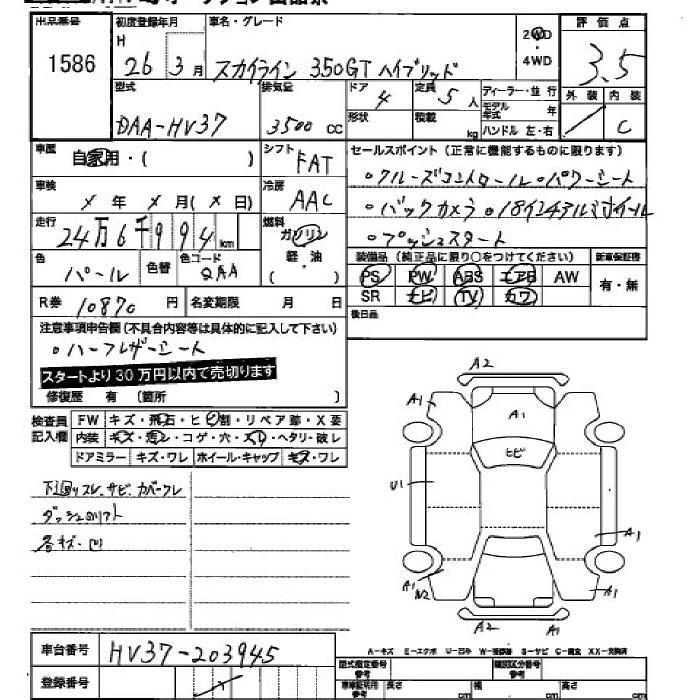 出品番号
1586
初度登録年月
H 26 3月
車名・グレード
スカイライン 350GT ハイブリッド
2WD
・
4WD
評価点
3.5
外装 内装
C
型式
DAA-HV37
排気量
3500 cc
ドア
4
定員
5人
形状
積載
kg
ディーラー・並行
モデル年式 年
ハンドル 左・右
車歴
自家用・( )
シフト
FAT
車検
メ年 メ月(メ日)
冷房
AAC
走行
24万6千994km
燃料
ガソリン
軽・油
( )
色
パール
色替
色コード
QAA
R券 10870 円
名変期限 月 日
セールスポイント(正常に機能するものに限ります)
。クルーズコントロール。パワーシート
。バックカメラ。18インチアルミホイール
。プッシュスタート
装備品(純正品に限り○をつけてください)
新車保証書
PS PW ABS エアB AW
SR ナビ TV カワ
有・無
後日品
注意事項申告欄(不具合内容等は具体的に記入して下さい)
。ハーフレザーシート
スタートより30万円以内で売切ります
修復歴 有(箇所 )
検査員記入欄
FW キズ・飛石・ヒビ割・リペア跡・X要
内装 キズ・汚レ・コゲ・穴・スレ・ヘタリ・破レ
ドアミラー キズ・ワレ ホイール・キャップ キズ・ワレ
下廻リスレ、サビ カバーワレ
各キズ・凹
A2
A1
A1
ヒビ
U1
A1
A1
A1
A2
A1
車台番号
HV37-203945
登録番号
A－キズ E－エクボ U－凹み S－サビ C－腐食 XX－交換済
型式指定番号
参考
類別区分番号
参考
車庫証明用
参考
長さ cm
幅 cm
高さ cm